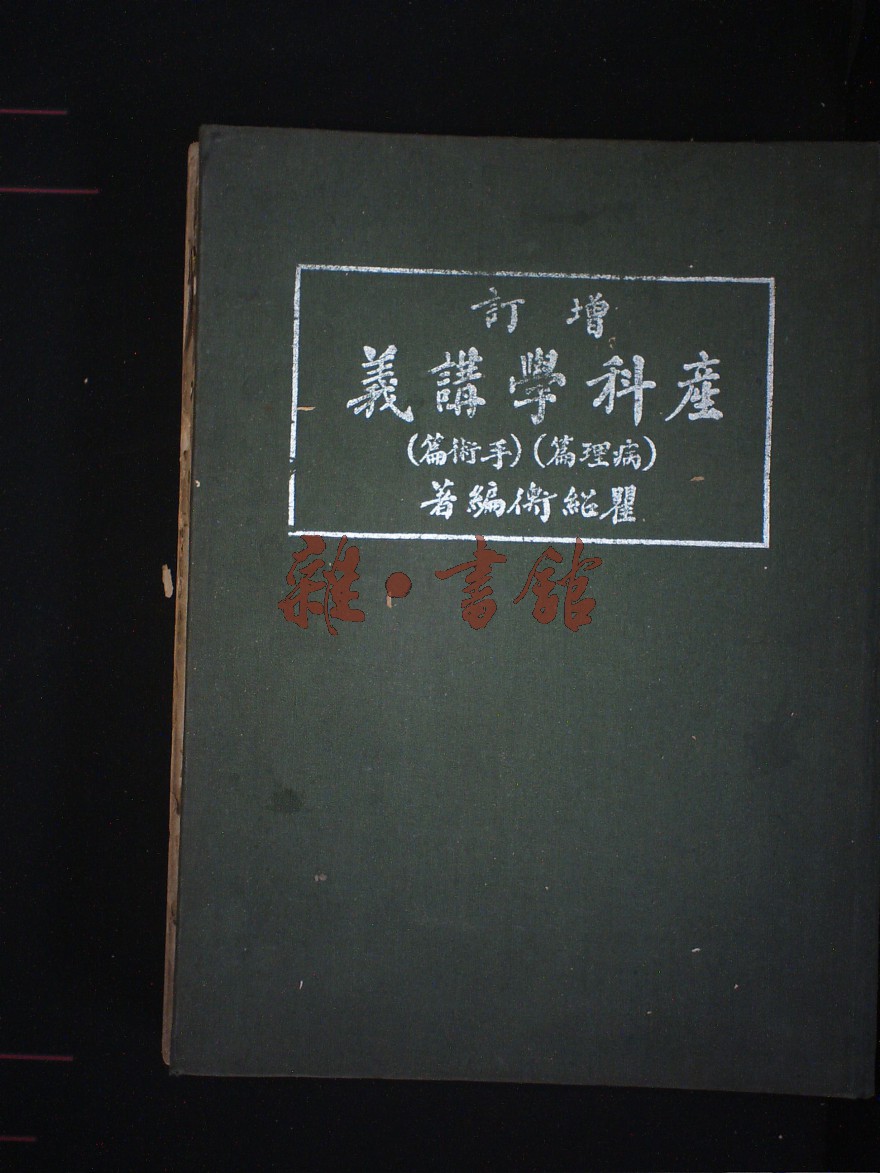 增訂
產科學講義
(病理篇)(手術篇)
瞿紹衡編著
雜·書館